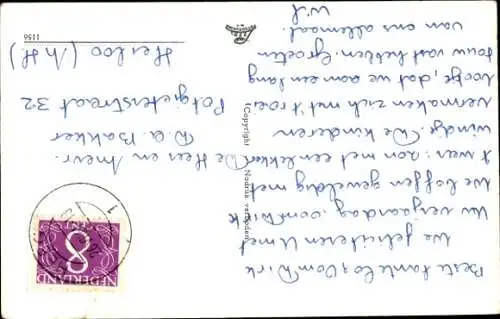 Beste tante Co & Oom Dirk
We feliciteren U met
Uw verjaardag, oom Dirk
We boffen geweldig met
't weer: zon met een lekker
windje. De kinderen
vermaken zich met 't roei-
bootje, dat we aan een lang
touw vast hebben. Groeten
van ons allemaal.
Wil
De Heer en Mevr.
D. A. Bakker
Potgieterstraat 32
Heiloo (N.H.)
Copyright Nadruk verboden
1156
8
CENT
NEDERLAND